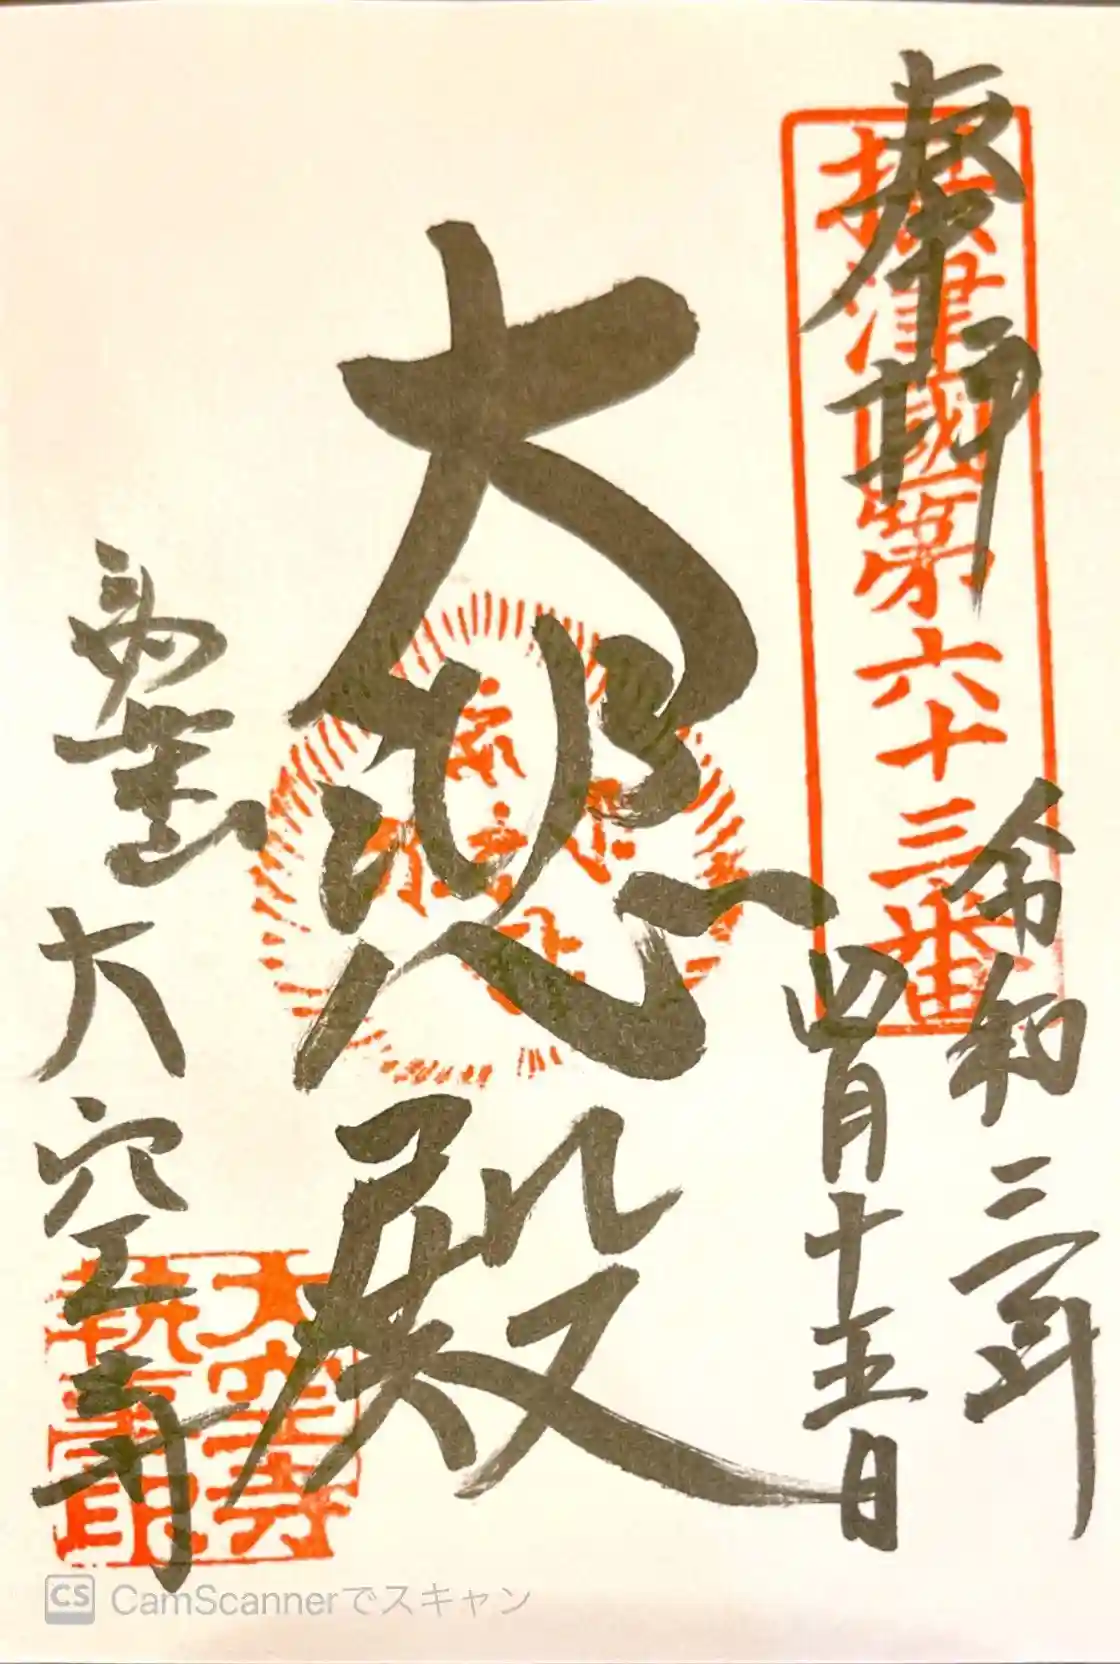 奉拝
摂津國第六十三番
令和三年
四月十五日
大悲殿
大空寺
大空寺
執事印
CS CamScannerでスキャン